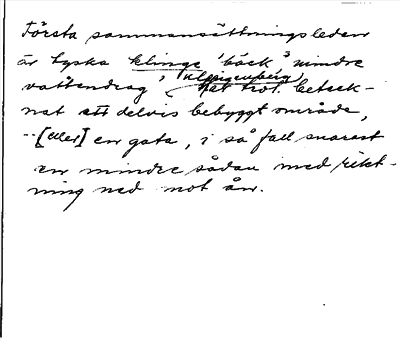 Första sammansättningsleden
är tyska klinge 'bäck, mindre
vattendrag'. Klingenberg har trol. beteck-
nat ett delvis bebyggt område,
[eller] en gata, i så fall snarast
en mindre sådan med rikt-
ning ned mot ån.